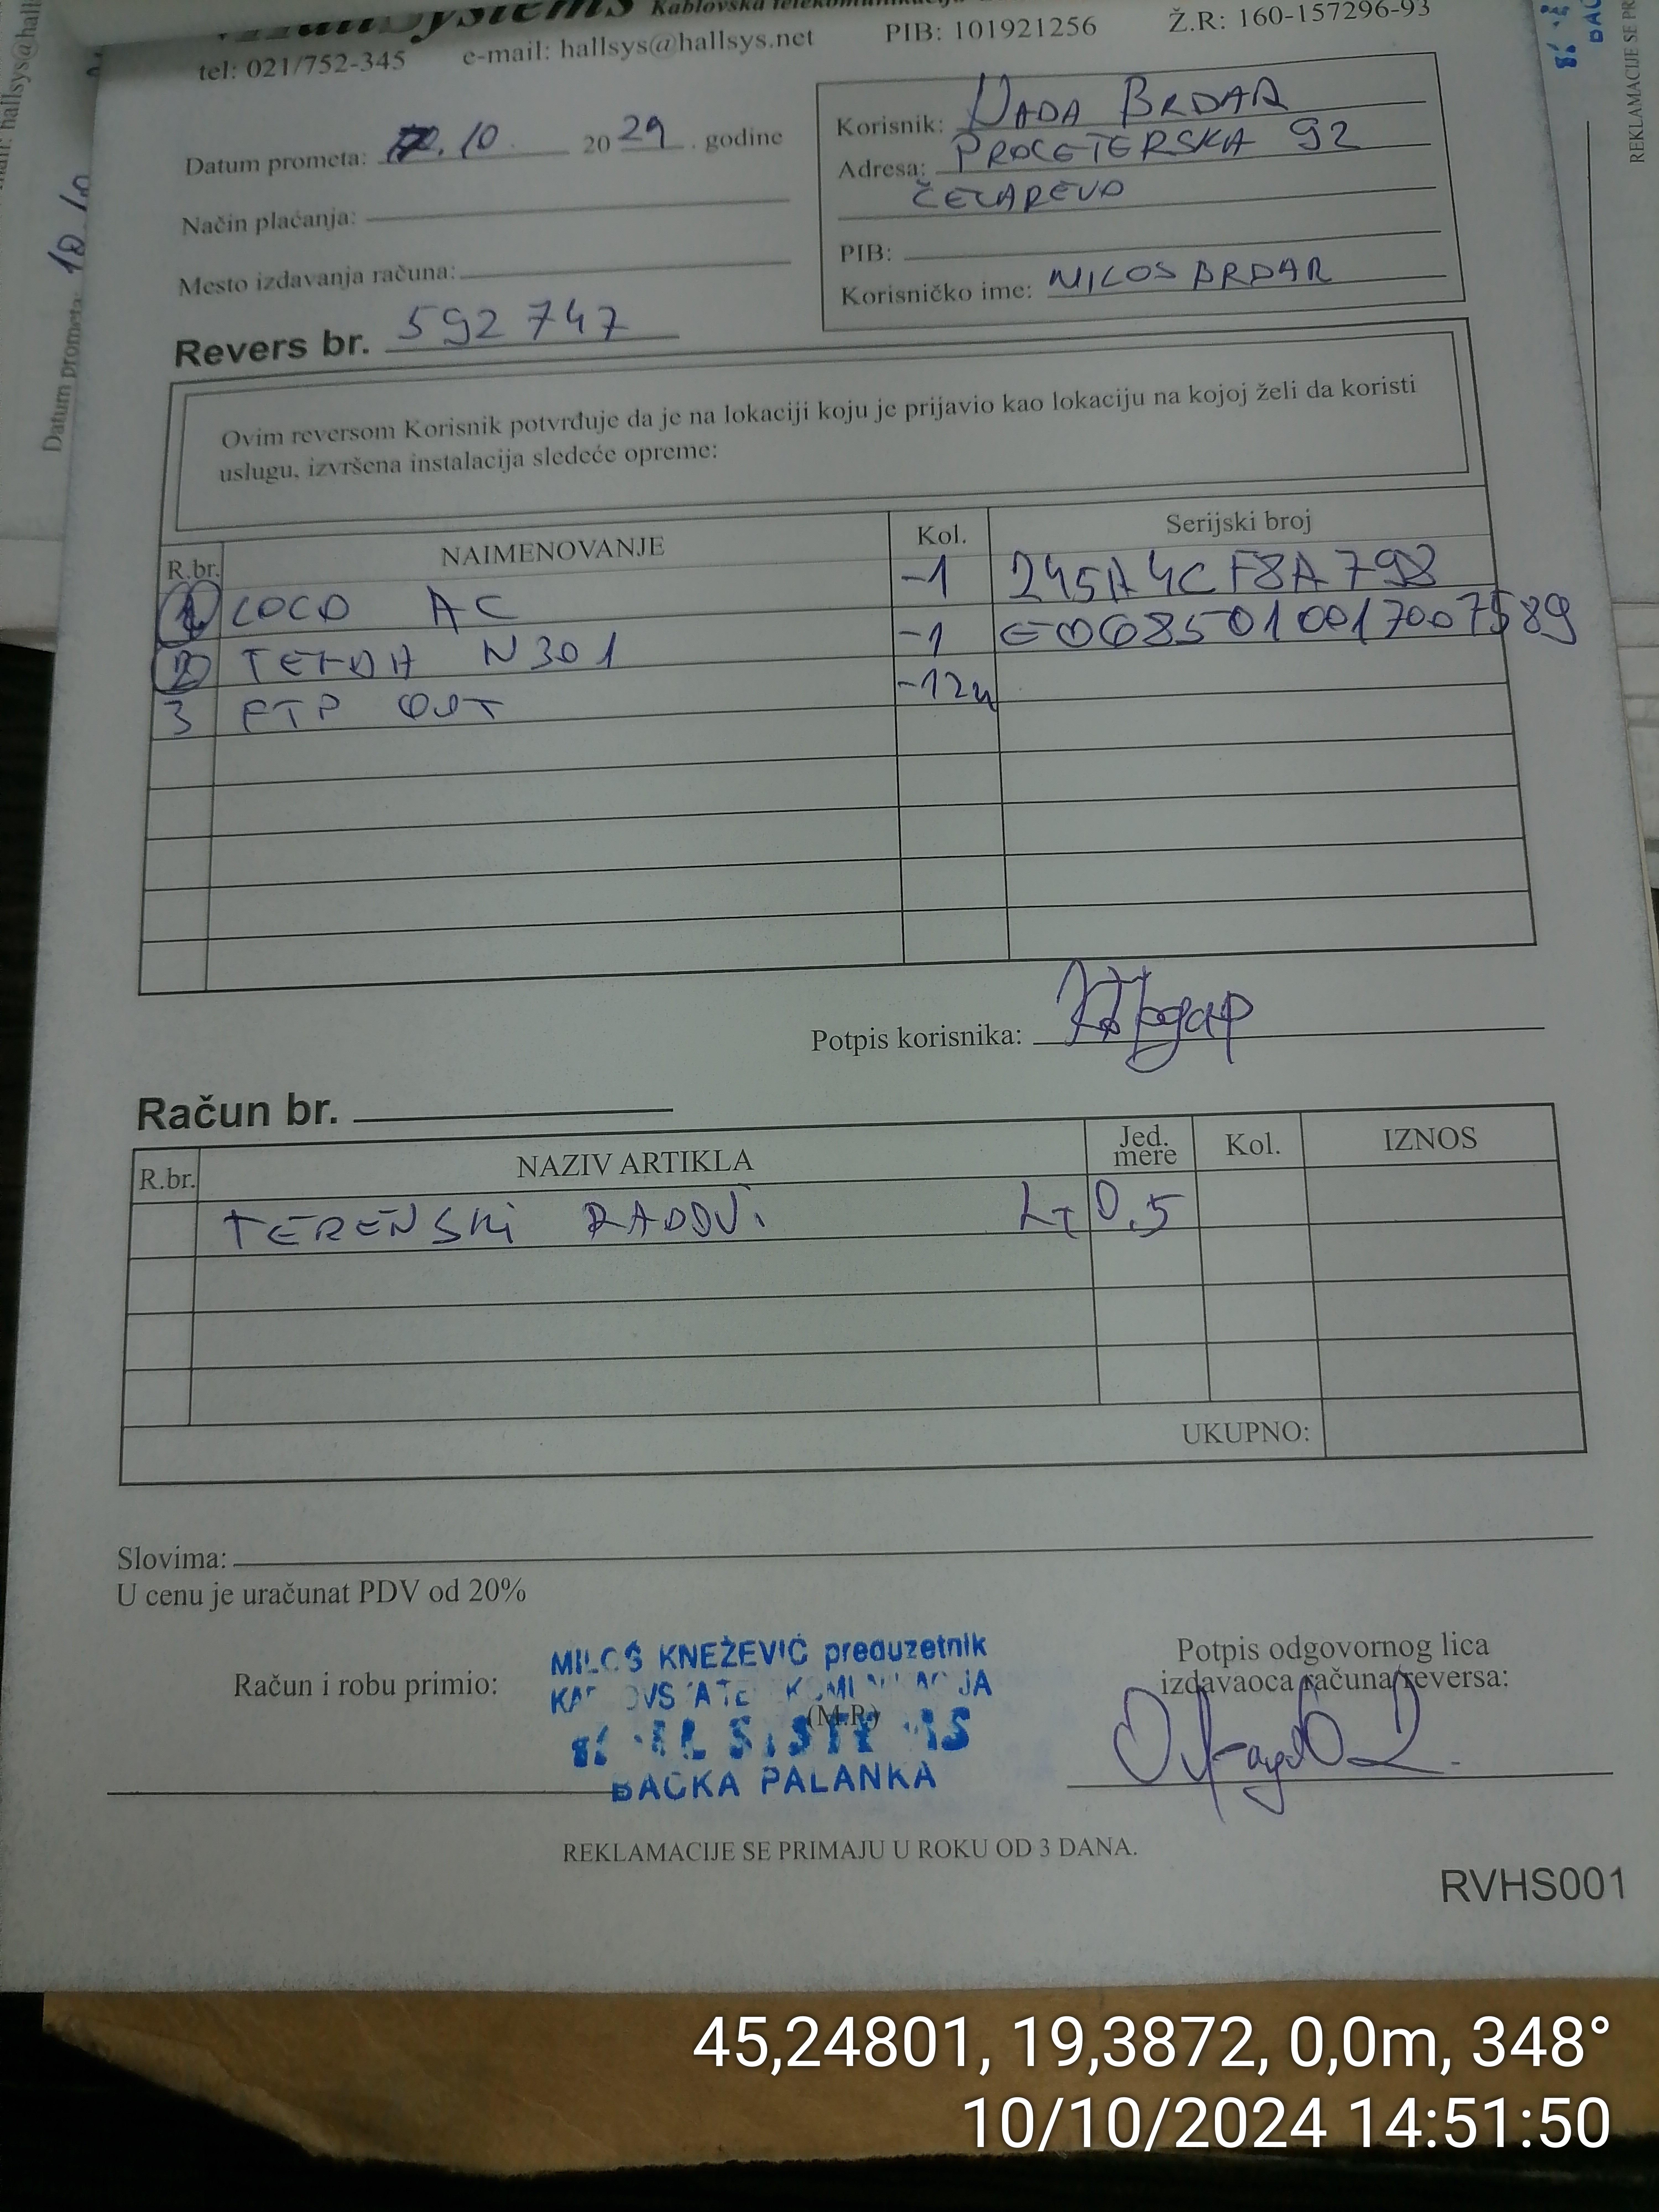 HallSystems Kablovska telekomunikacija
tel: 021/752-345 e-mail: hallsys@hallsys.net PIB: 101921256 Ž.R: 160-157296-93
Datum prometa: 10. 20 24 . godine
Način plaćanja:
Mesto izdavanja računa:
Revers br. 592747
Korisnik: NADA BRDAR
Adresa: PROLETERSKA 92
ČELAREVO
PIB:
Korisničko ime: MILOS BRDAR
Ovim reversom Korisnik potvrđuje da je na lokaciji koju je prijavio kao lokaciju na kojoj želi da koristi
uslugu, izvršena instalacija sledeće opreme:
R.br. NAIMENOVANJE Kol. Serijski broj
1 LOCO AC -1 245A4CF8A798
2 TENDA N301 -1 E0685010017007589
3 FTP OUT -12m
Potpis korisnika:
Račun br.
R.br. NAZIV ARTIKLA Jed. mere Kol. IZNOS
TERENSKI RADOVI 0,5
UKUPNO:
Slovima:
U cenu je uračunat PDV od 20%
Račun i robu primio:
MILOŠ KNEŽEVIĆ preduzetnik
(M.P.)
BAČKA PALANKA
Potpis odgovornog lica
izdavaoca računa/reversa:
REKLAMACIJE SE PRIMAJU U ROKU OD 3 DANA.
RVHS001
45,24801, 19,3872, 0,0m, 348°
10/10/2024 14:51:50